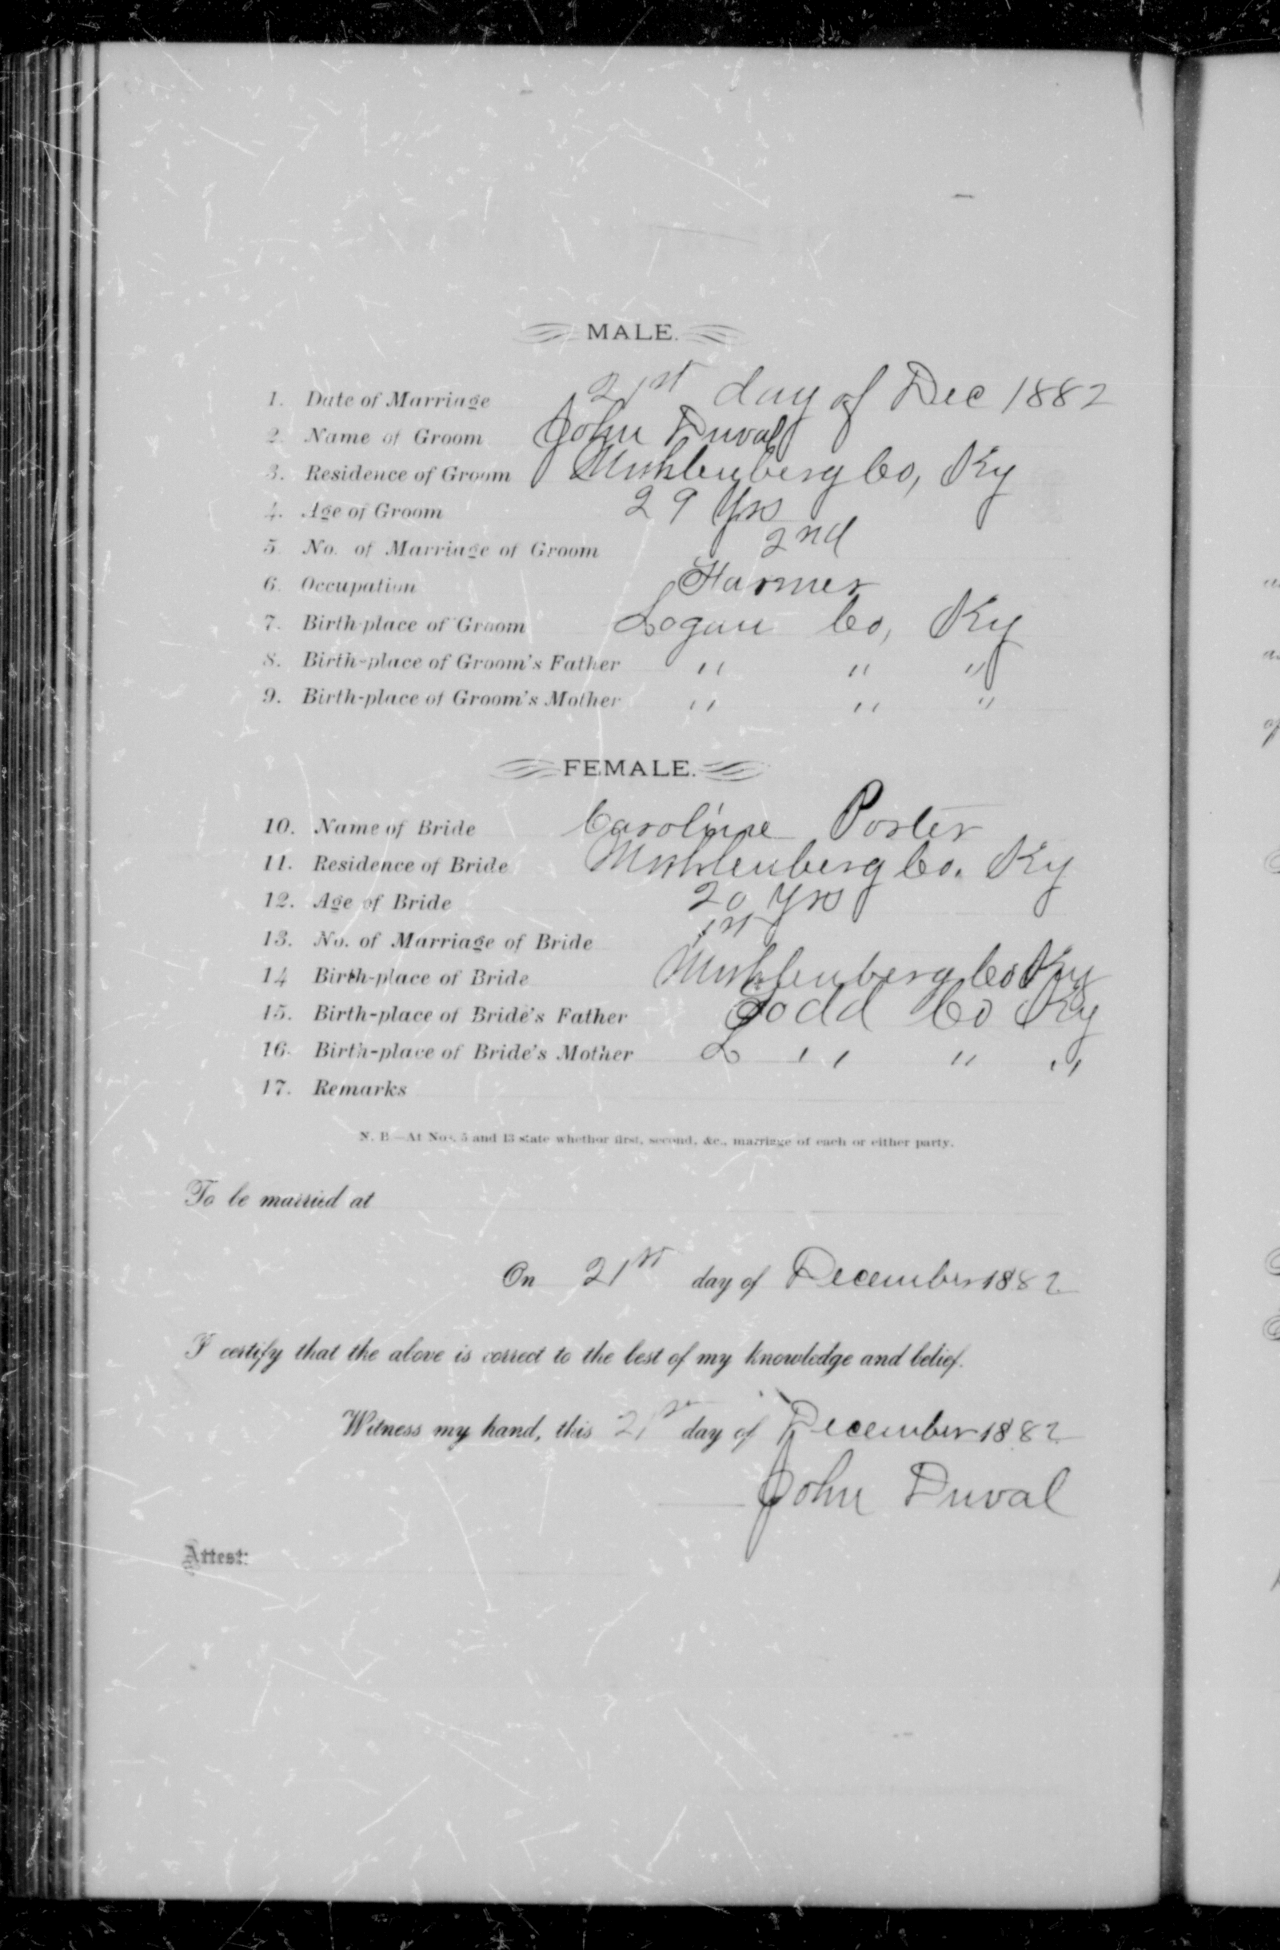 MALE.
1. Date of Marriage 21st day of Dec 1882
2. Name of Groom John Duval
3. Residence of Groom Muhlenberg Co, Ky
4. Age of Groom 29 Yrs
5. No. of Marriage of Groom 2nd
6. Occupation Farmer
7. Birth-place of Groom Logan Co, Ky
8. Birth-place of Groom's Father " " "
9. Birth-place of Groom's Mother " " "
FEMALE.
10. Name of Bride Caroline Porter
11. Residence of Bride Muhlenberg Co. Ky
12. Age of Bride 20 Yrs
13. No. of Marriage of Bride 1st
14. Birth-place of Bride Muhlenberg Co Ky
15. Birth-place of Bride's Father Todd Co Ky
16. Birth-place of Bride's Mother " " "
17. Remarks
N. B.—At Nos. 5 and 13 state whether first, second, &c., marriage of each or either party.
To be married at
On 21st day of December 1882
I certify that the above is correct to the best of my knowledge and belief.
Witness my hand, this 21st day of December 1882
John Duval
Attest: